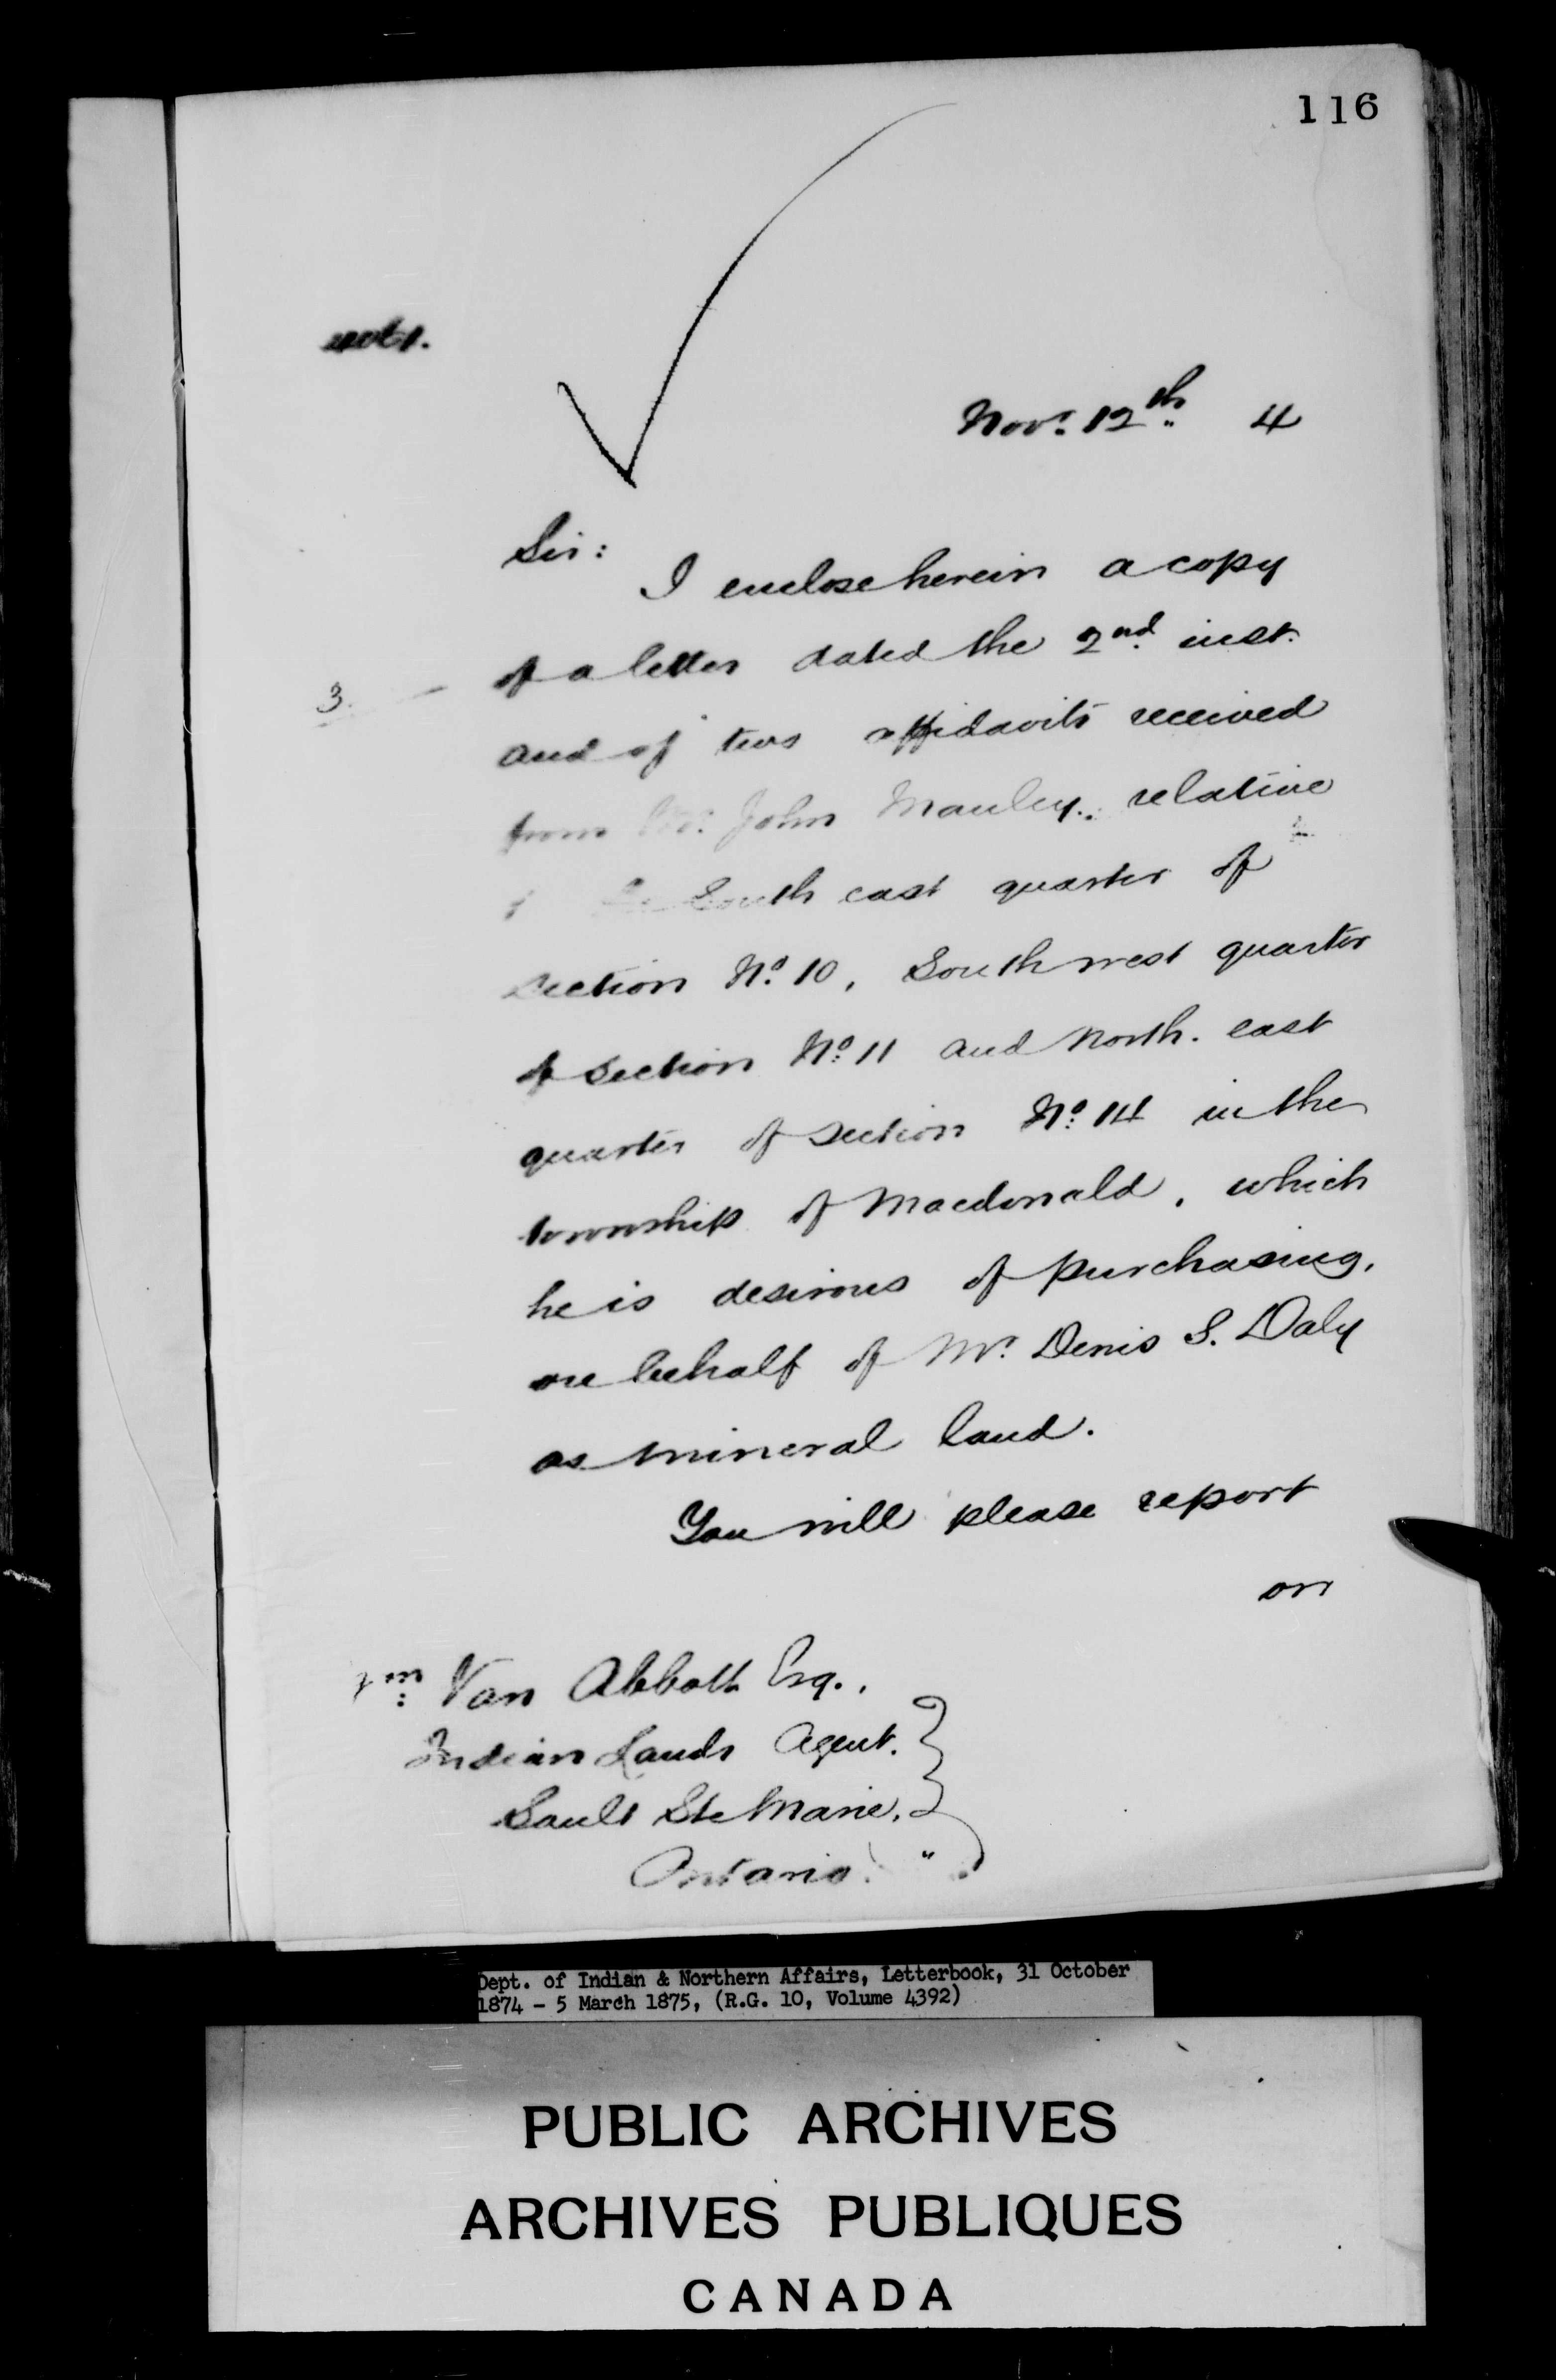 116
Novr. 12th 4
Sir:
I enclose herein a copy
of a letter dated the 2nd inst.
3.
and of two affidavits received
from Mr. John Manley, relative
South east quarter of
section No. 10, South west quarter
of section No. 11 and North. east
quarter of section No. 14 in the
township of Macdonald, which
he is desirous of purchasing,
on behalf of Mr. Denis S. Daly
as mineral land.
You will please report
on
Wm. Van Abbott Esq.,
Indian Lands Agent.
Sault Ste Marie,
Ontario.
Dept. of Indian & Northern Affairs, Letterbook, 31 October
1874 - 5 March 1875, (R.G. 10, Volume 4392)
PUBLIC ARCHIVES
ARCHIVES PUBLIQUES
CANADA